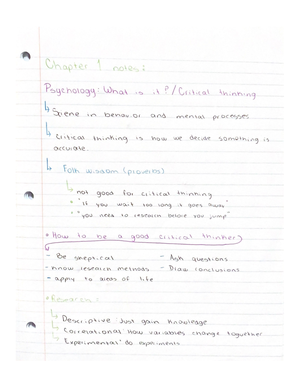 Chapter 1 notes:
Psychology: What is it? / Critical thinking
Sciene in behavior and mental processes
Critical thinking is how we decide something is
accurate.
Folk wisdom (proverbs)
not good for critical thinking
"If you wait too long it goes away"
"you need to research before you jump"
How to be a good critical thinker?
- Be skeptical - Ask questions
- know research methods - Draw conclusions
- apply to areas of life
Research:
Descriptive: Just gain knowledge
Correlational: How variables change together
Experimental: do experiments